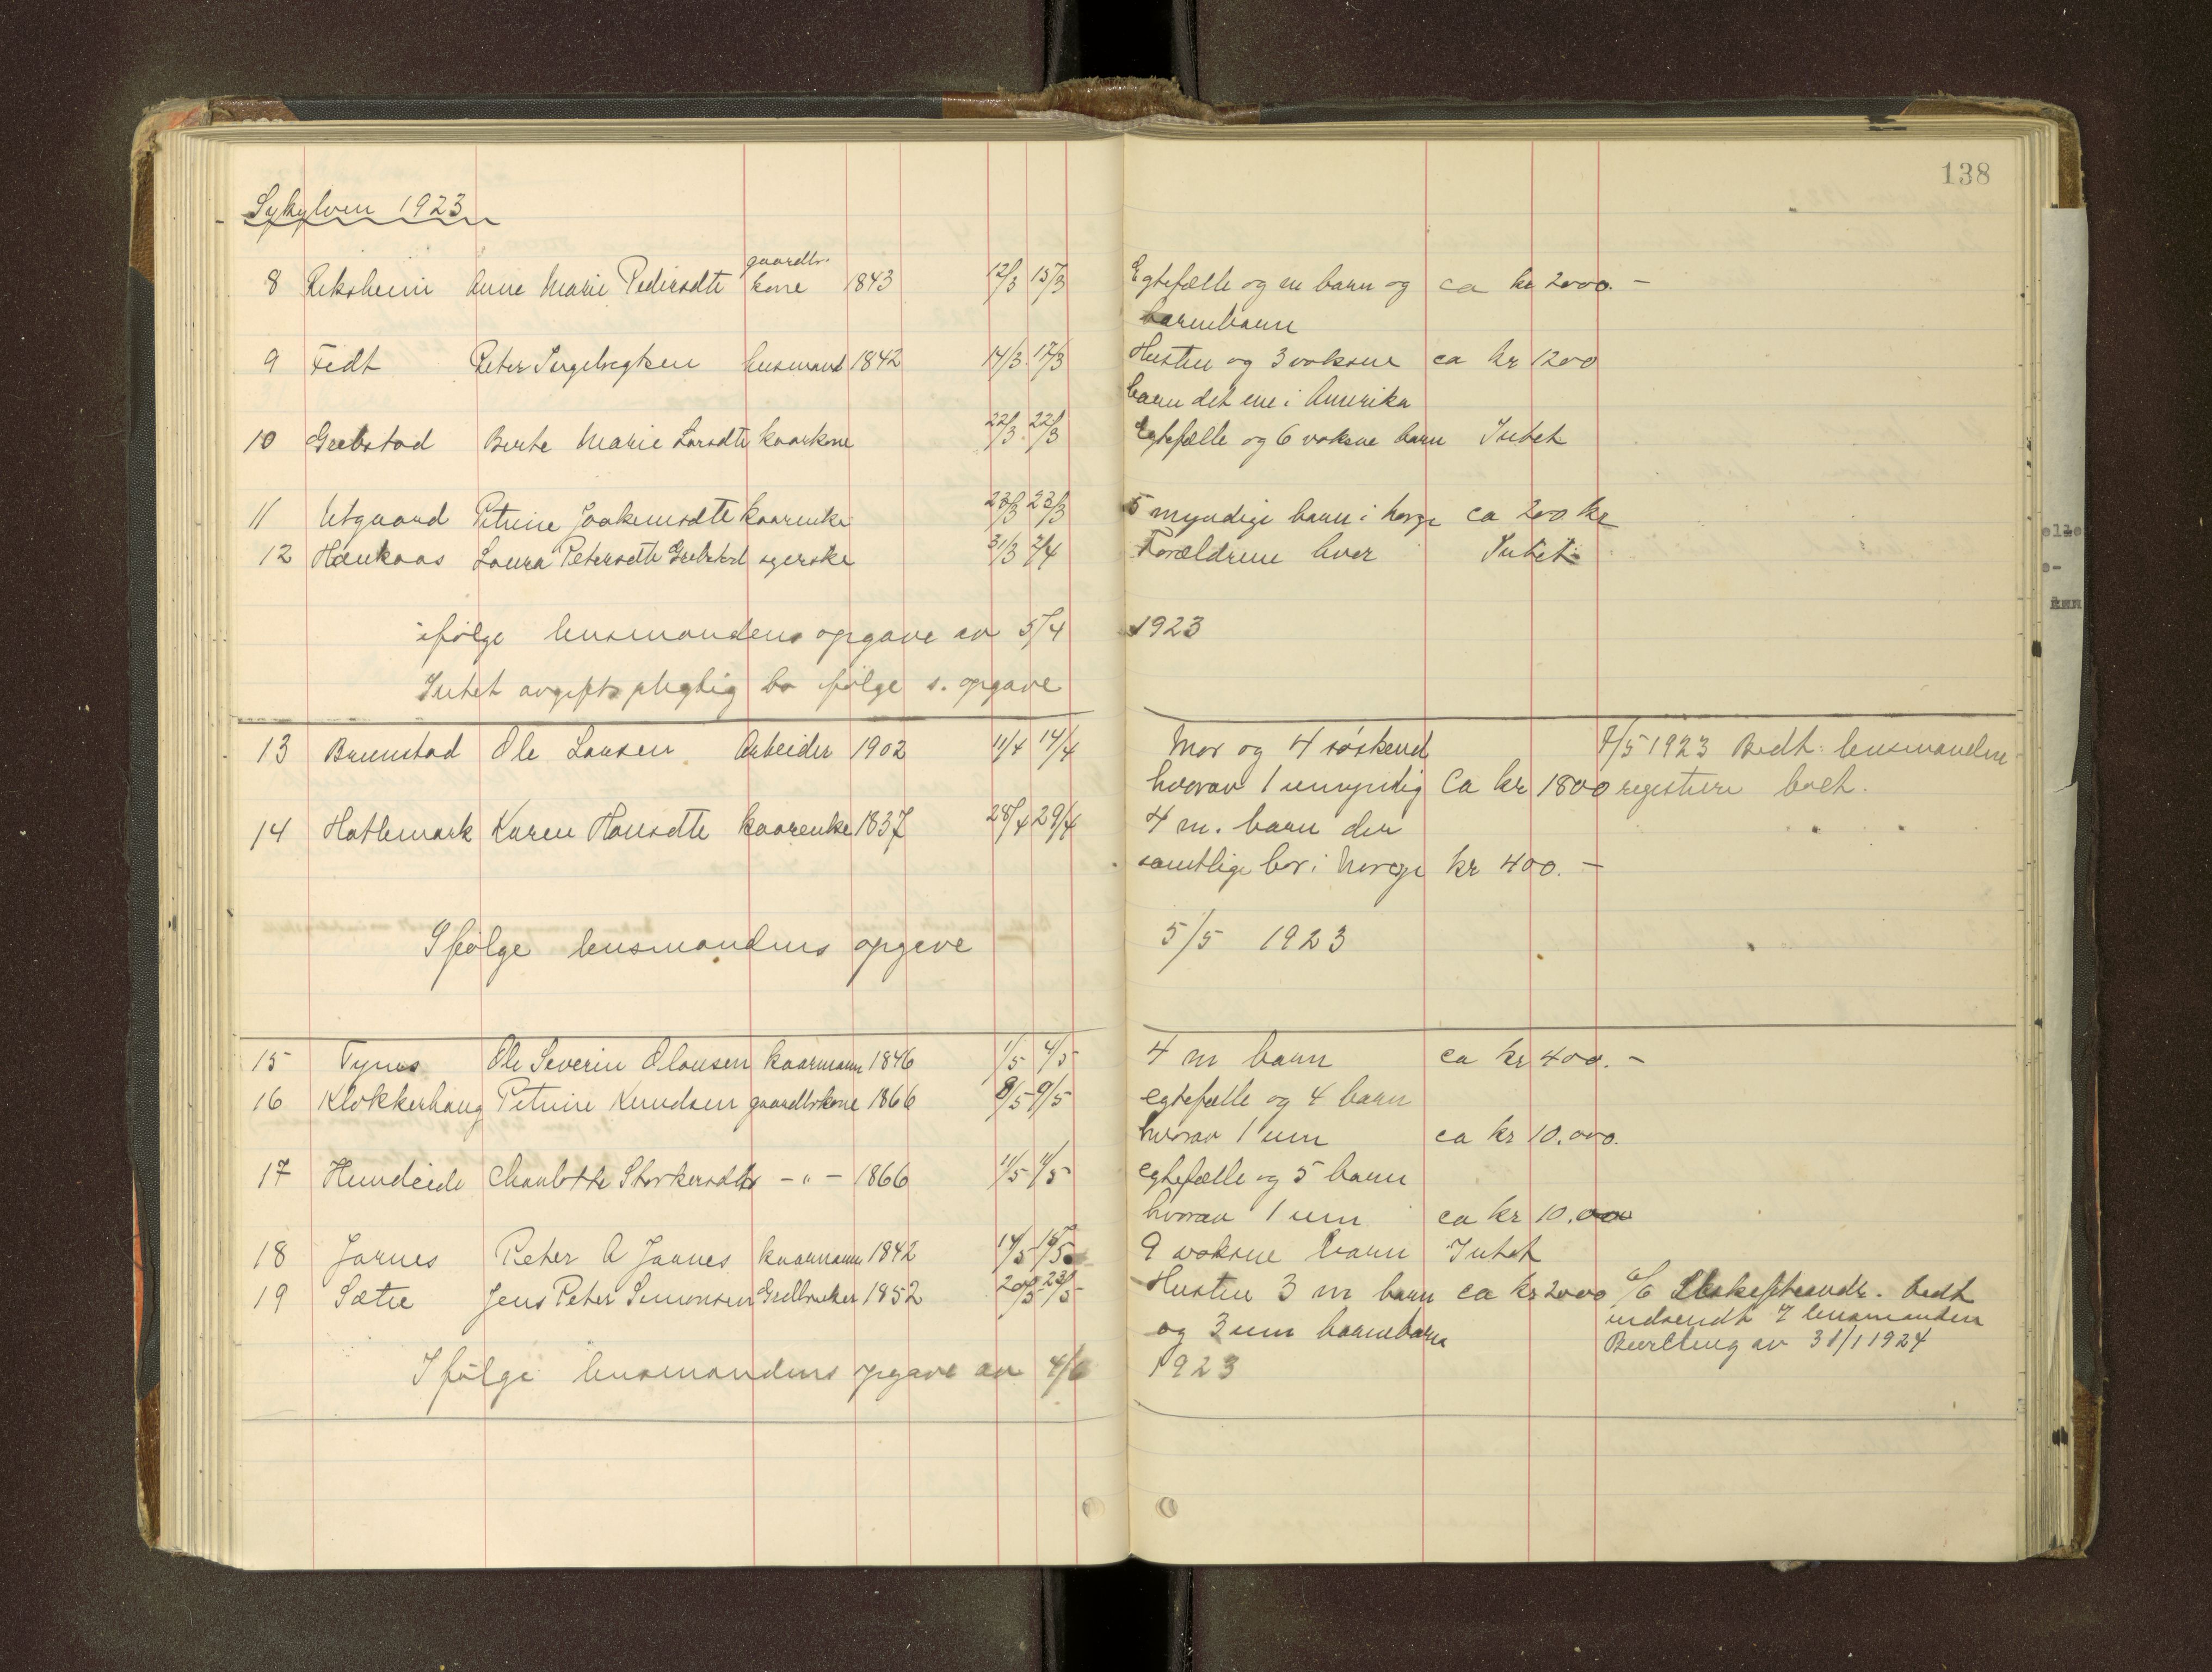 138
Sykylven 1923
8 Riksheim Anne Marie Pedersdtr gaardbr. kone 1843 12/3 15/3 Egtefælle og en barn og ca kr 2000.-
barnebarn
9 Fedt Peter Ingebregtsen husmand 1842 14/3 17/3 Hustru og 3 voksne ca kr 1200
barn det ene i Amerika
10 Grebstad Berte Marie Larsdtr kaarkone 22/3 22/3 Egtefælle og 6 voksne barn Intet
11 Utgaard Petrine Joakimsdtr kaarenke 23/3 23/3 5 myndige barn i Norge ca 200 kr
12 Haukaas Laura Petersdtr Grebstad syerske 31/3 2/4 Forældrene lever Intet
ifølge lensmandens opgave av 5/4 1923
Intet avgiftspligtig bo ifølge s. opgave
13 Brunstad Ole Larsen Arbeider 1902 11/4 14/4 Mor og 4 søskend 8/5 1923 Bedt. lensmanden
hvorav 1 umyndig Ca kr 1800 registrere boet.
14 Hatlemark Karen Hansdtr kaarenke 1837 28/4 29/4 4 m. barn der
samtlige bor i Norge kr 400.-
Ifølge lensmandens opgave 5/5 1923
15 Tynes Ole Severin Olausen kaarmann 1846 1/5 4/5 4 m barn ca kr 400.-
16 Klokkerhaug Petrine Knudsen gaardbrkone 1866 8/5 9/5 egtefælle og 4 barn
hvorav 1 um ca kr 10.000.
17 Hundeide Charlotte Storkersdtr -"- 1866 11/5 11/5 egtefælle og 5 barn
hvorav 1 um ca kr 10.000
18 Jarnes Peter A Jarnes kaarmann 1842 14/5 16/5 9 voksne barn Intet
19 Sætre Jens Peter Simonsen Grdbruker 1852 20/5 23/5 Hustru 3 m barn ca kr 2000 6/6 Skiftesamle. bedt
og 3 um barnebarn indsendt f lensmanden
Bevilling av 31/1 1924
Ifølge lensmandens opgave av 4/6 1923